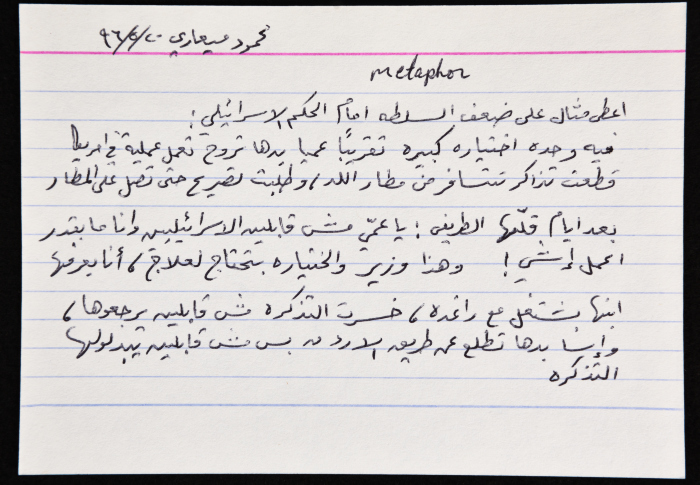 محمود ميعاري ٩٦/٥/٢٠
metaphor
اعطى مثال على ضعف السلطه امام الحكم الاسرائيلي:
فيه وحده اختياره كبيره تقريبًا عميا بدها تروح تعمل عملية في امريكا
قطعت تذاكر تتسافر من مطار اللد، وطلبت تصريح حتى تصل على المطار
بعد ايام قلّها الطريفي: يا عمّي مش قابلين الاسرائيليين وانا ما بقدر
اعمل إشي! وهذا وزير والختياره بتحتاج لعلاج، أنا بعرفها
ابنها بشتغل مع راغده، خسرت التذكره مش قابلين يرجعوها،
وإسّا بدها تطلع عن طريق الاردن بس مش قابلين يبدلولها
التذكره